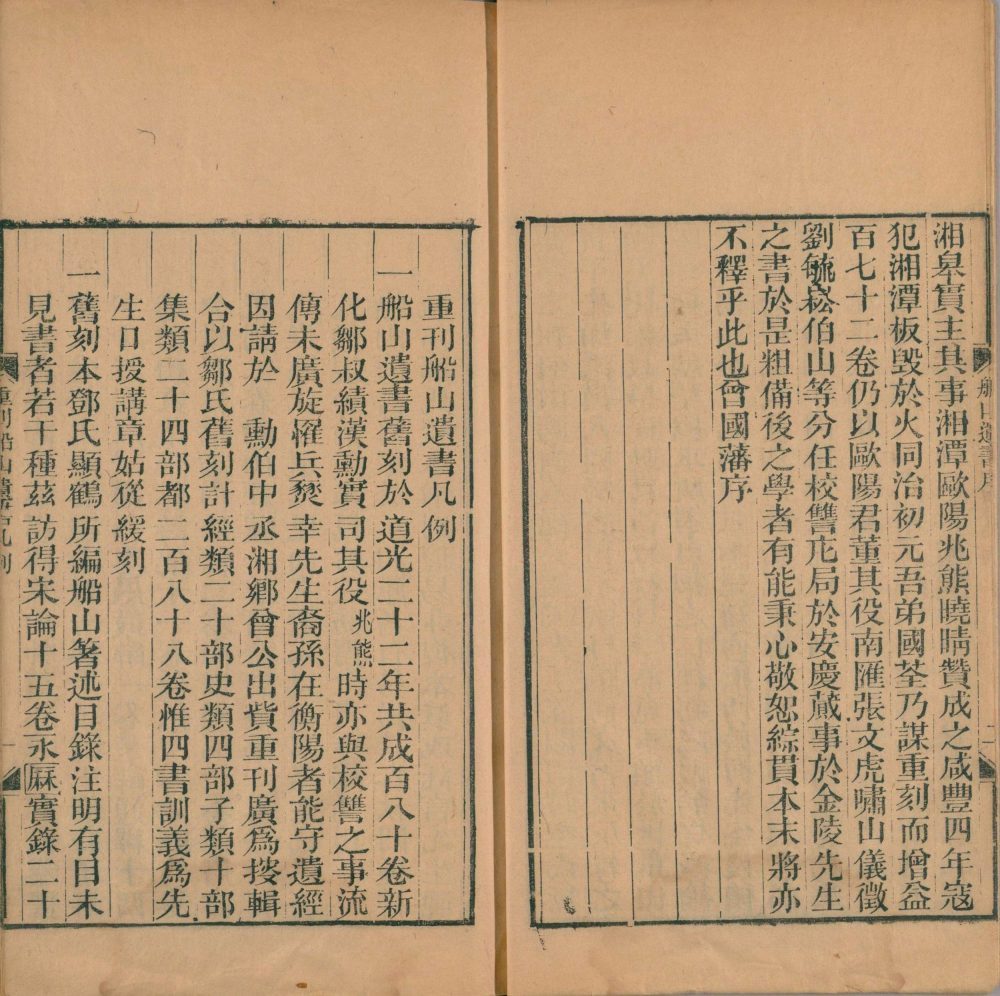 湘皋實主其事湘潭歐陽兆熊曉晴贊成之咸豐四年寇
犯湘潭板毀於火同治初元吾弟國荃乃謀重刻而增益
百七十二卷仍以歐陽君董其役南匯張文虎嘯山儀徵
劉毓崧伯山等分任校讐庀局於安慶蕆事於金陵先生
之書於是粗備後之學者有能秉心敬恕綜貫本末將亦
不釋乎此也曾國藩序
船山遺書序
一
重刊船山遺書凡例
一船山遺書舊刻於 道光二十二年共成百八十卷新
化鄒叔績漢勳實司其役兆熊時亦與校讐之事流
傳未廣旋懼兵燹 幸先生裔孫在衡陽者能守遺經
因請於 勳伯中丞湘鄉曾公出貲重刊廣為搜輯
合以鄒氏舊刻計經類二十部史類四部子類十部
集類二十四部都二百八十八卷惟四書訓義為先
生口授講章姑從緩刻
一舊刻本鄧氏顯鶴所編船山箸述目錄注明有目未
見書者若干種茲訪得宋論十五卷永厤實錄二十
重刊船山遺書凡例
一